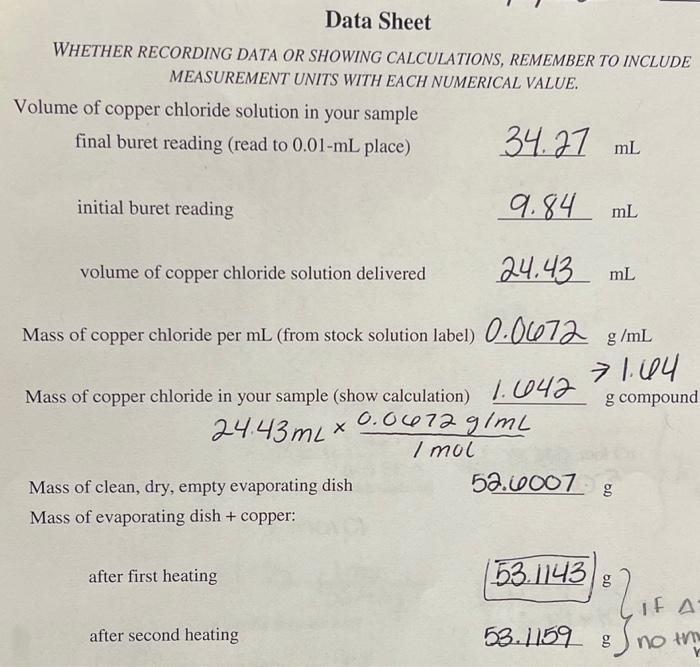 Data Sheet
WHETHER RECORDING DATA OR SHOWING CALCULATIONS, REMEMBER TO INCLUDE
MEASUREMENT UNITS WITH EACH NUMERICAL VALUE.
Volume of copper chloride solution in your sample
final buret reading (read to 0.01-mL place) 34.27 mL
initial buret reading 9.84 mL
volume of copper chloride solution delivered 24.43 mL
Mass of copper chloride per mL (from stock solution label) 0.0672 g/mL
→ 1.64
Mass of copper chloride in your sample (show calculation) 1.642 g compound
24.43mL × 0.0672 g/mL
1 mol
Mass of clean, dry, empty evaporating dish 52.6007 g
Mass of evaporating dish + copper:
after first heating 53.1143 g
IF Δ
after second heating 53.1159 g no